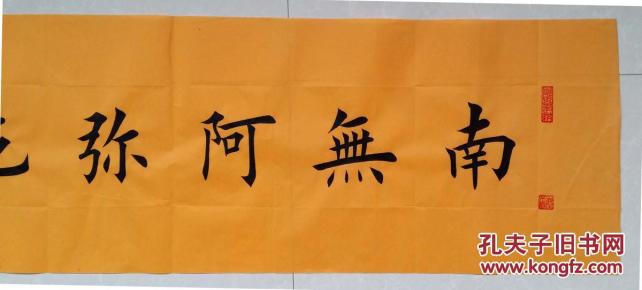 南無阿弥
孔夫子旧书网
www.kongfz.com